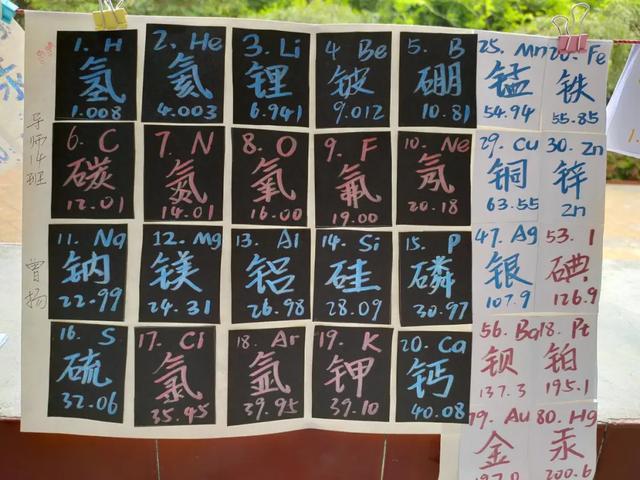 1. H
氢
1.008
2. He
氦
4.003
3. Li
锂
6.941
4 Be
铍
9.012
5. B
硼
10.81
25. Mn
锰
54.94
26. Fe
铁
55.85
6. C
碳
12.01
7. N
氮
14.01
8. O
氧
16.00
9. F
氟
19.00
10. Ne
氖
20.18
29. Cu
铜
63.55
30. Zn
锌
Zn
11. Na
钠
22.99
12. Mg
镁
24.31
13. Al
铝
26.98
14. Si
硅
28.09
15. P
磷
30.97
47. Ag
银
107.9
53. I
碘
126.9
16. S
硫
32.06
17. Cl
氯
35.45
18. Ar
氩
39.95
19. K
钾
39.10
20. Ca
钙
40.08
56. Ba
钡
137.3
78. Pt
铂
195.1
79. Au
金
197.0
80. Hg
汞
200.6
导师14班
曾扬